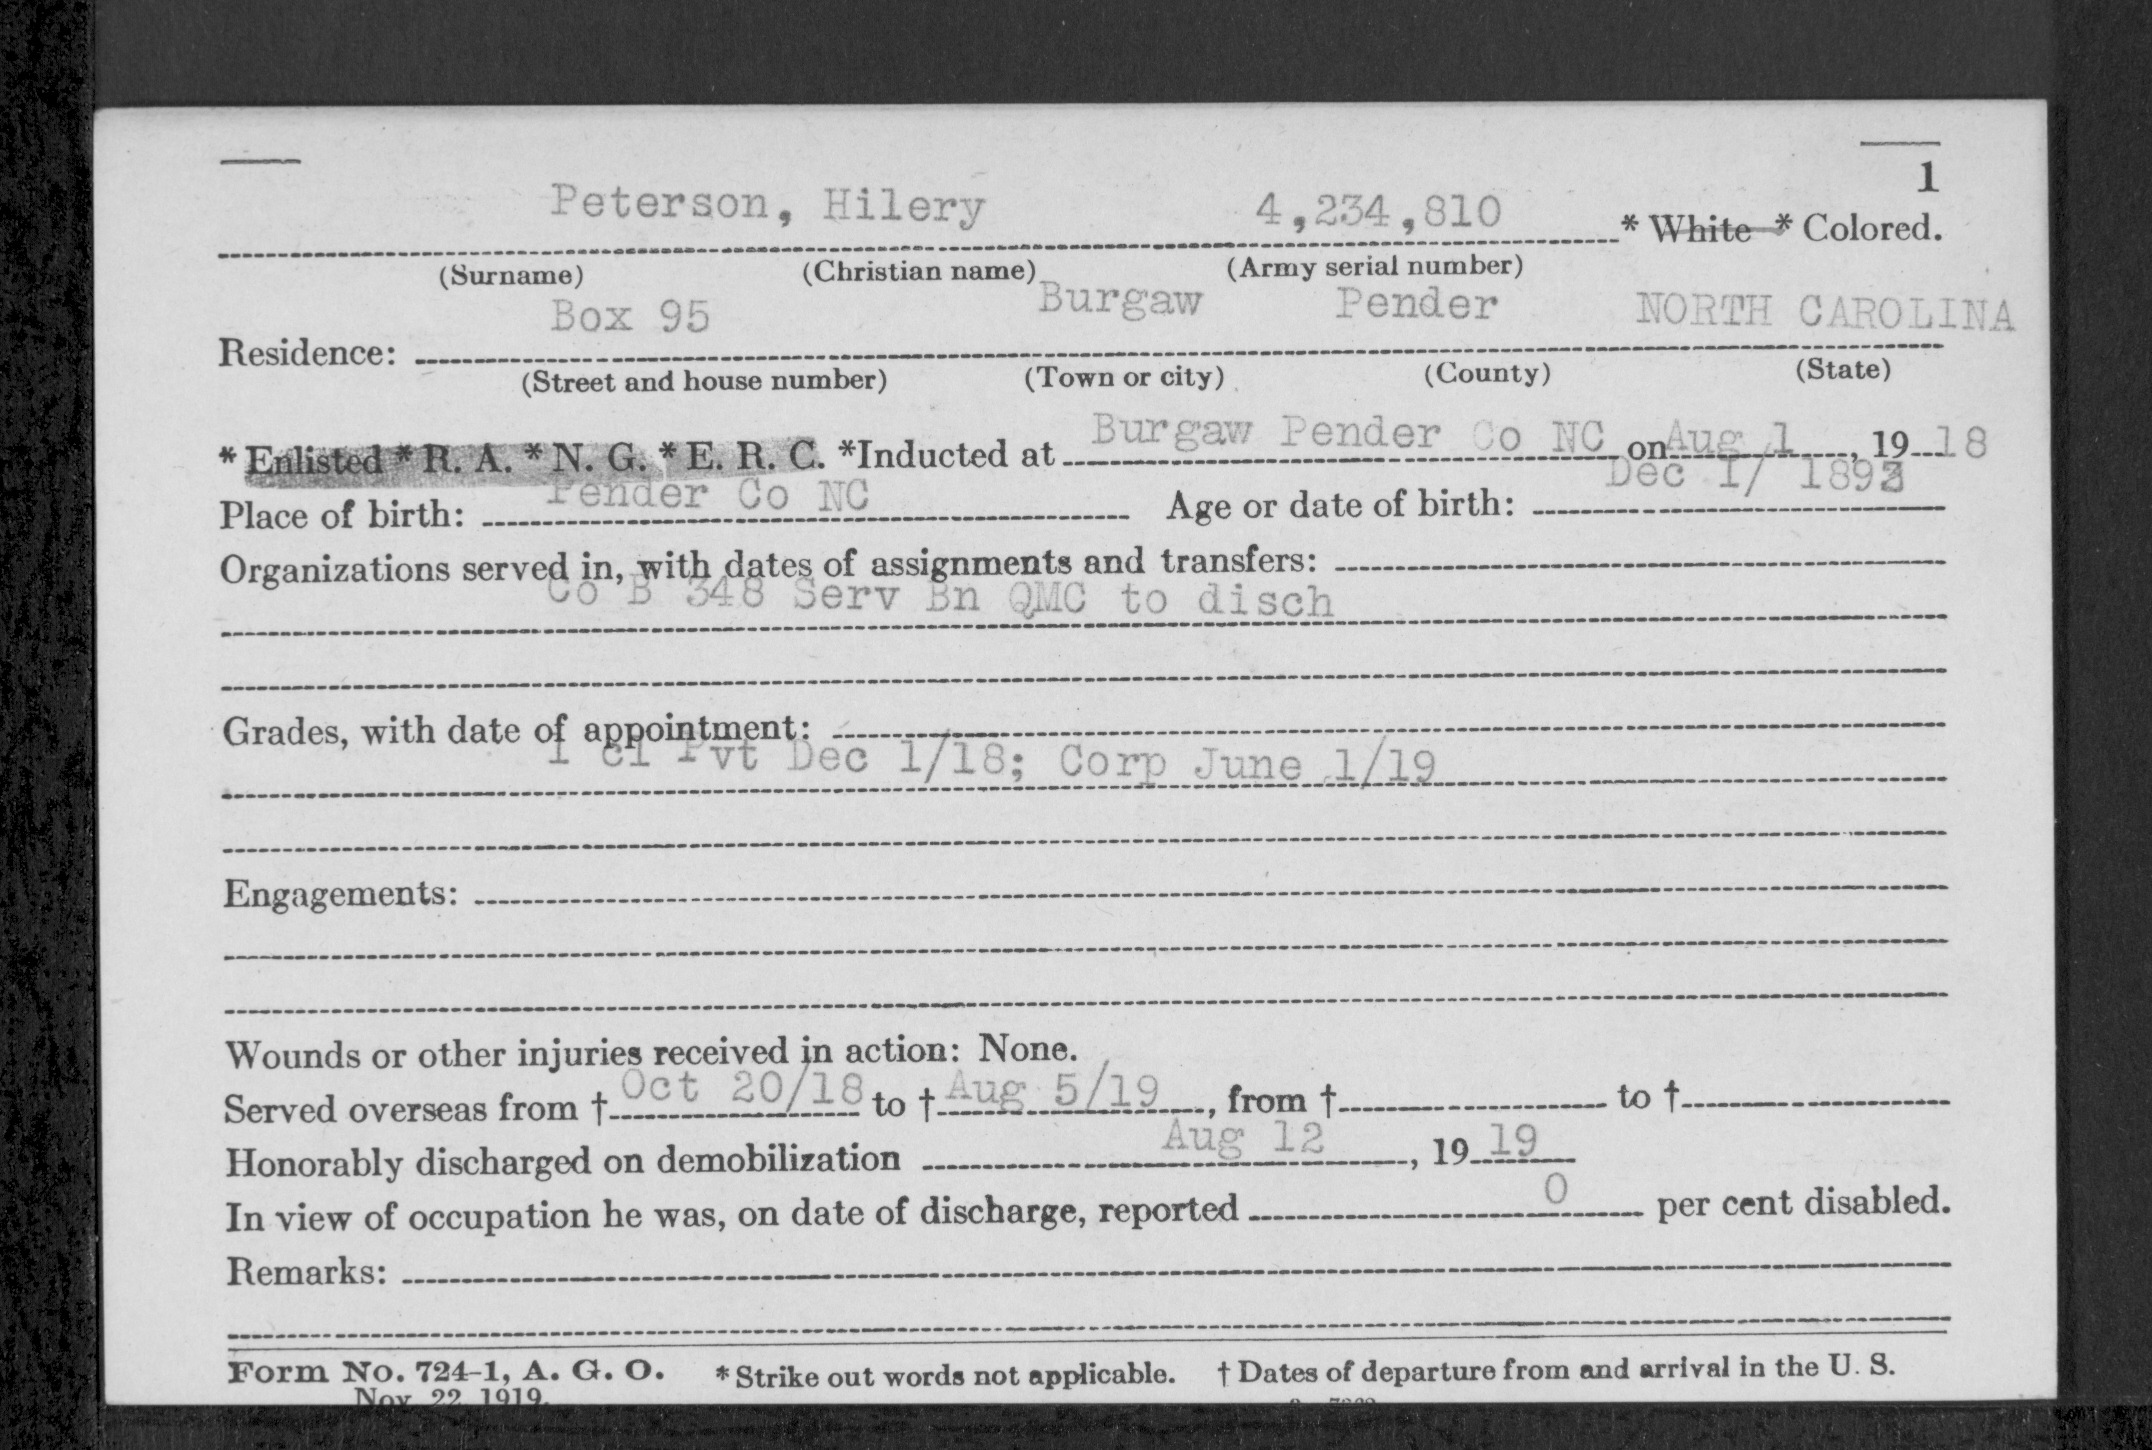 1
Peterson, Hilery 4,234,810 * White * Colored.
(Surname) (Christian name) (Army serial number)
Box 95 Burgaw Pender NORTH CAROLINA
Residence:
(Street and house number) (Town or city) (County) (State)
* Enlisted * R. A. * N. G. * E. R. C. *Inducted at Burgaw Pender Co NC on Aug 1, 19 18
Place of birth: Pender Co NC Age or date of birth: Dec 1/ 1893
Organizations served in, with dates of assignments and transfers:
Co B 348 Serv Bn QMC to disch
Grades, with date of appointment:
1 cl Pvt Dec 1/18; Corp June 1/19
Engagements:
Wounds or other injuries received in action: None.
Served overseas from † Oct 20/18 to † Aug 5/19, from † to †
Honorably discharged on demobilization Aug 12, 19 19
In view of occupation he was, on date of discharge, reported 0 per cent disabled.
Remarks:
Form No. 724-1, A. G. O. * Strike out words not applicable. † Dates of departure from and arrival in the U. S.
Nov. 22, 1919.